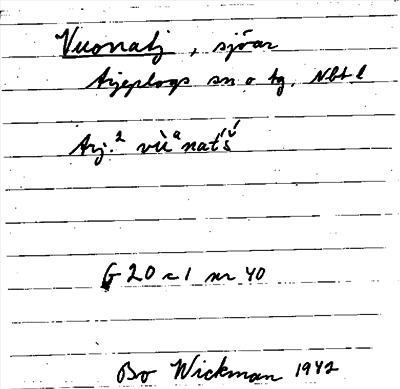 Vuonatj, sjöar
Arjeplogs sn o tg, Nbt l
Arj.² vùᵃnat́š́
G 20 c 1 nr 40
Bo Wickman 1942